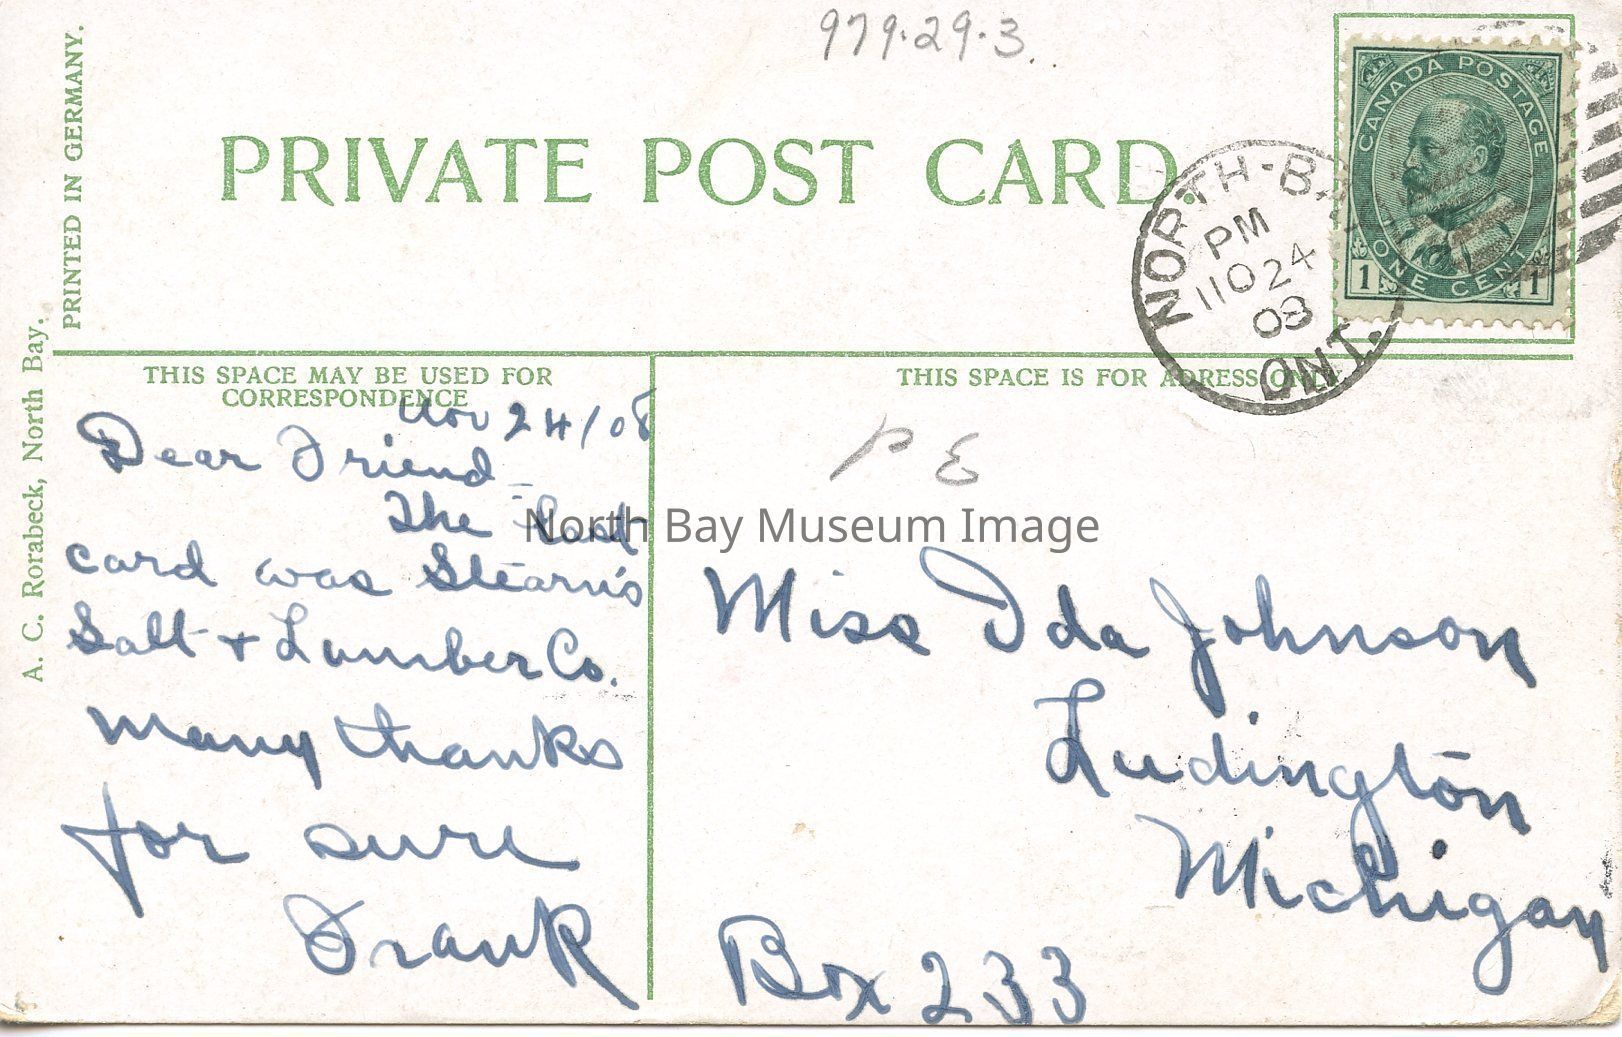 979.29.3
PRIVATE POST CARD
PRINTED IN GERMANY.
A. C. Rorabeck, North Bay.
CANADA POSTAGE
1 ONE CENT 1
NORTH-BA
PM
11 O 24
08
ONT.
THIS SPACE MAY BE USED FOR
CORRESPONDENCE
THIS SPACE IS FOR ADRESS ONLY
Nov 24/08
Dear Friend
The last
card was Stearn's
Salt + Lumber Co.
Many thanks
for sure
Frank
P E
North Bay Museum Image
Miss Ida Johnson
Ludington
Michigan
Box 233